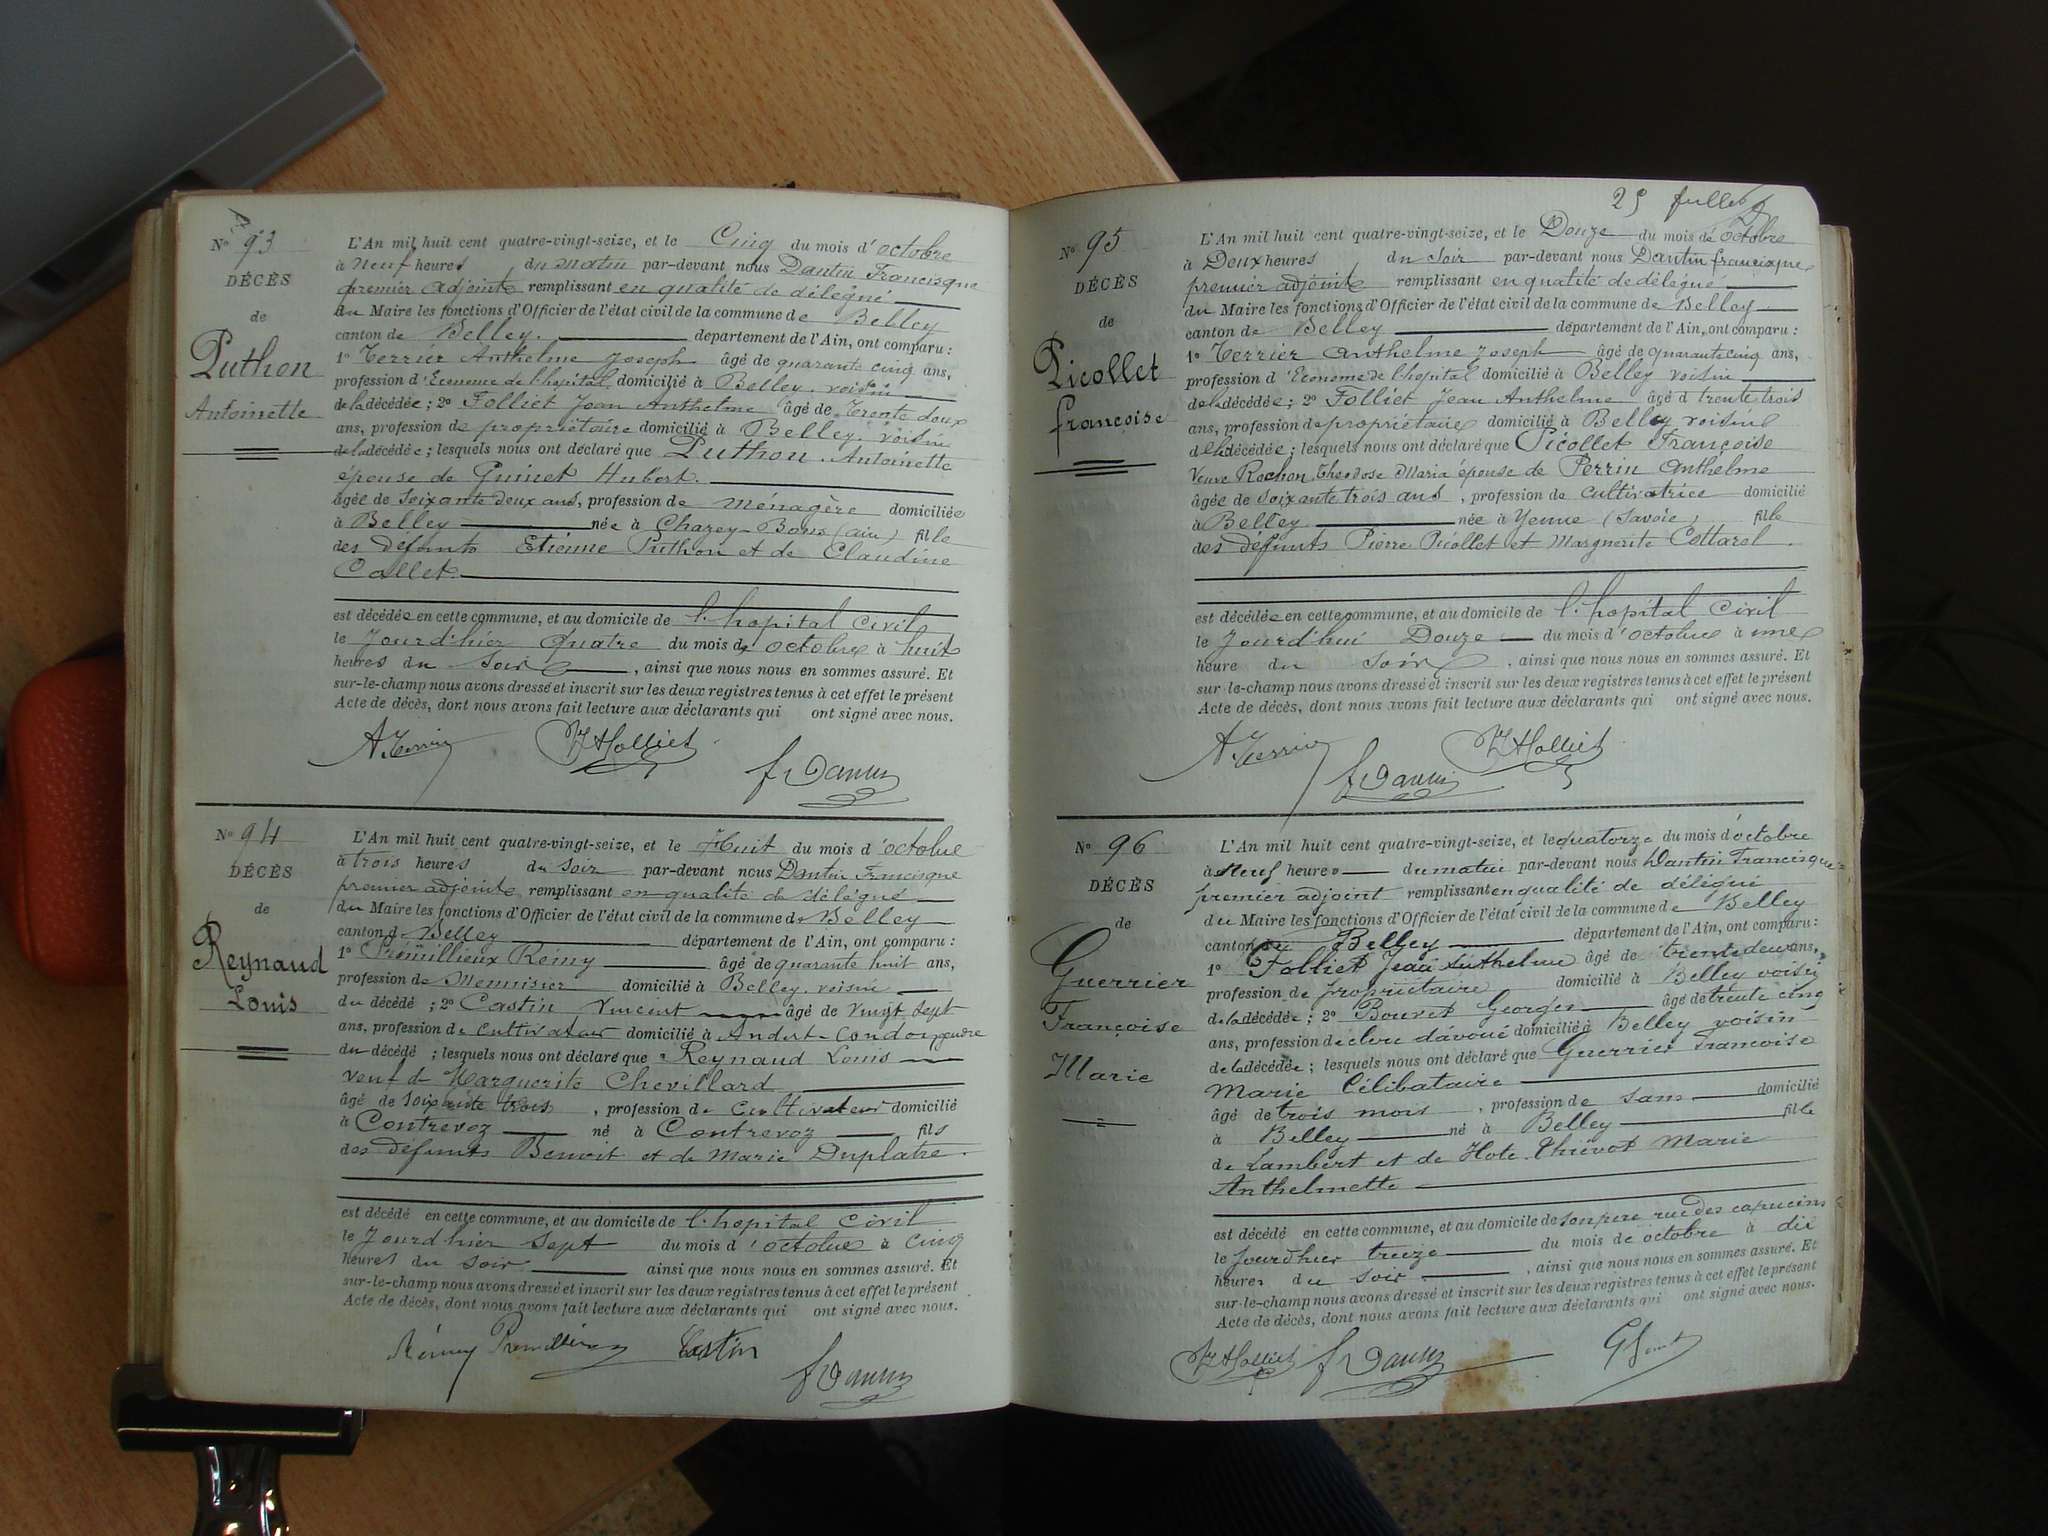 Nº 93
DÉCÈS
de
Puthon
Antoinette
L'An mil huit cent quatre-vingt-seize, et le Cinq du mois d'octobre
à neuf heures du matin par-devant nous Dantin Francisque
premier adjoint remplissant en qualité de délégué
du Maire les fonctions d'Officier de l'état civil de la commune de Belley
canton de Belley. département de l'Ain, ont comparu :
1º Terrier Anthelme Joseph âgé de quarante cinq ans,
profession d'Econome de l'hopital domicilié à Belley. voisin
de la décédée ; 2º Folliet Jean Anthelme âgé de Trente deux
ans, profession de propriétaire domicilié à Belley. voisin
de la décédée ; lesquels nous ont déclaré que Puthon. Antoinette
épouse de Guinet Hubert.
âgée de soixante deux ans, profession de ménagère domiciliée
à Belley née à Chazey-Bons (ain) fille
des défunts Etienne Puthon et de Claudine
Callet.
est décédée en cette commune, et au domicile de l'hopital civil
le Jourd'hier Quatre du mois de octobre à huit
heures du soir , ainsi que nous nous en sommes assuré. Et
sur-le-champ nous avons dressé et inscrit sur les deux registres tenus à cet effet le présent
Acte de décès, dont nous avons fait lecture aux déclarants qui ont signé avec nous.
A Terrier JAFolliet
f Dantin
Nº 94
DÉCÈS
de
Reynaud
Louis
L'An mil huit cent quatre-vingt-seize, et le Huit du mois d'octobre
à trois heures du soir par-devant nous Dantin Francisque
premier adjoint remplissant en qualité de délégué
du Maire les fonctions d'Officier de l'état civil de la commune de Belley
canton de Belley département de l'Ain, ont comparu :
1º Prémillieux Rémy âgé de quarante huit ans,
profession de Menuisier domicilié à Belley. voisin
du décédé ; 2º Castin Vincent âgé de vingt sept
ans, profession de cultivateur domicilié à Andert-Condon gendre
du décédé ; lesquels nous ont déclaré que Reynaud Louis
veuf de Marguerite Chevillard
âgé de soixante trois , profession de cultivateur domicilié
à Contrevoz né à Contrevoz fils
des défunts Benoit et de Marie Duplatre.
est décédé en cette commune, et au domicile de l'hopital civil
le Jourd'hier Sept du mois d'octobre à cinq
heures du soir ainsi que nous nous en sommes assuré. Et
sur-le-champ nous avons dressé et inscrit sur les deux registres tenus à cet effet le présent
Acte de décès, dont nous avons fait lecture aux déclarants qui ont signé avec nous.
Rémy Premillieux Castin
f Dantin
25
Nº 95
DÉCÈS
de
Picollet
françoise
L'An mil huit cent quatre-vingt-seize, et le Douze du mois de Octobre
à Deux heures du soir par-devant nous Dantin francisque
premier adjoint remplissant en qualité de délégué
du Maire les fonctions d'Officier de l'état civil de la commune de Belley
canton de Belley département de l'Ain, ont comparu :
1º Terrier Anthelme Joseph âgé de quarante cinq ans,
profession d'Econome de l'hopital domicilié à Belley voisin
de la décédée ; 2º Folliet Jean Anthelme âgé d trente trois
ans, profession de propriétaire domicilié à Belley voisin
de la décédée ; lesquels nous ont déclaré que Picollet Françoise
Veuve Rochon Théodose Maria épouse de Perrin Anthelme
âgée de soixante trois ans , profession de cultivatrice domicilié
à Belley née à Yenne (Savoie) fille
des défunts Pierre Picollet et Marguerite Cottarel.
est décédée en cette commune, et au domicile de l'hopital civil
le Jourd'hui Douze du mois d'octobre à une
heure du soir , ainsi que nous nous en sommes assuré. Et
sur-le-champ nous avons dressé et inscrit sur les deux registres tenus à cet effet le présent
Acte de décès, dont nous avons fait lecture aux déclarants qui ont signé avec nous.
A Terrier JAFolliet
f Dantin
Nº 96
DÉCÈS
de
Guerrier
Françoise
Marie
L'An mil huit cent quatre-vingt-seize, et le quatorze du mois d'octobre
à neuf heures du matin par-devant nous Dantin Francisque
premier adjoint remplissant en qualité de délégué
du Maire les fonctions d'Officier de l'état civil de la commune de Belley
canton de Belley département de l'Ain, ont comparu :
1º Folliet Jean Anthelme âgé de trente deux ans,
profession de propriétaire domicilié à Belley voisin
de la décédée ; 2º Bouvet Georges âgé de trente cinq
ans, profession de clerc d'avoué domicilié à Belley voisin
de la décédée ; lesquels nous ont déclaré que Guerrier Françoise
Marie Célibataire
âgé de trois mois , profession de sans domicilié
à Belley né à Belley fille
de Lambert et de Hote. Thievot Marie
Anthelmette
est décédé en cette commune, et au domicile de son pere rue des capucins
le Jourd'hier treize du mois de octobre à dix
heures du soir , ainsi que nous nous en sommes assuré. Et
sur-le-champ nous avons dressé et inscrit sur les deux registres tenus à cet effet le présent
Acte de décès, dont nous avons fait lecture aux déclarants qui ont signé avec nous.
JAFolliet f Dantin